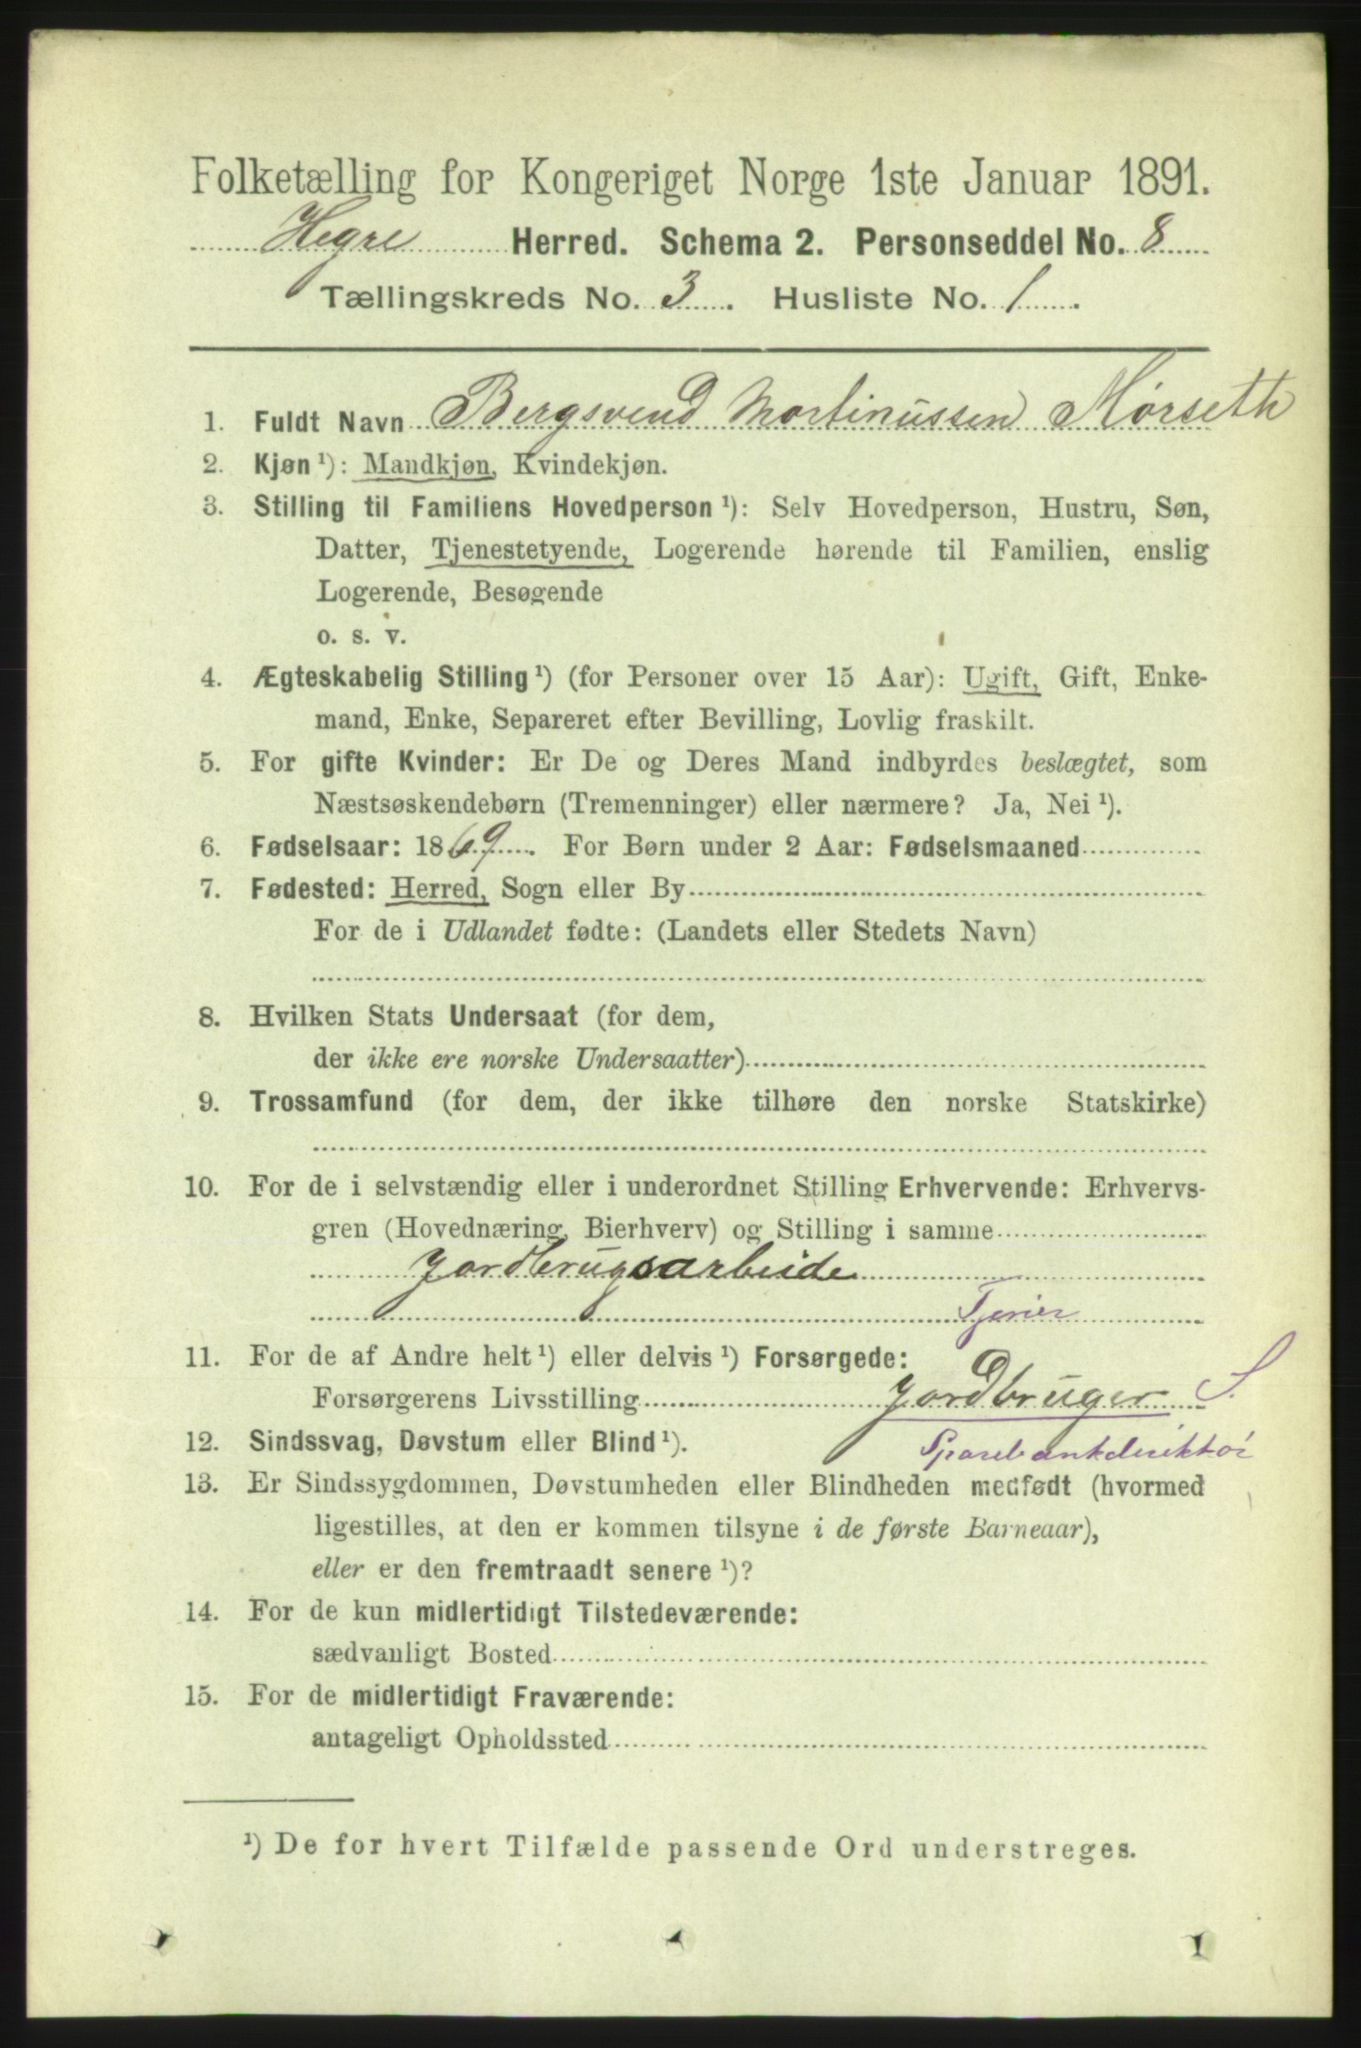 Folketælling for Kongeriget Norge 1ste Januar 1891.
Hegre Herred. Schema 2. Personseddel No. 8
Tællingskreds No. 3. Husliste No. 1.
1. Fuldt Navn Bergsvend Martinussen Mørseth
2. Kjøn ¹): Mandkjøn, Kvindekjøn.
3. Stilling til Familiens Hovedperson ¹): Selv Hovedperson, Hustru, Søn,
Datter, Tjenestetyende, Logerende hørende til Familien, enslig
Logerende, Besøgende
o. s. v.
4. Ægteskabelig Stilling ¹) (for Personer over 15 Aar): Ugift, Gift, Enke-
mand, Enke, Separeret efter Bevilling, Lovlig fraskilt.
5. For gifte Kvinder: Er De og Deres Mand indbyrdes beslægtet, som
Næstsøskendebørn (Tremenninger) eller nærmere? Ja, Nei ¹).
6. Fødselsaar: 1869. For Børn under 2 Aar: Fødselsmaaned
7. Fødested: Herred, Sogn eller By
For de i Udlandet fødte: (Landets eller Stedets Navn)
8. Hvilken Stats Undersaat (for dem,
der ikke ere norske Undersaatter)
9. Trossamfund (for dem, der ikke tilhøre den norske Statskirke)
10. For de i selvstændig eller i underordnet Stilling Erhvervende: Erhvervs-
gren (Hovednæring, Bierhverv) og Stilling i samme
Jordbrugsarbeide
Tjener
11. For de af Andre helt ¹) eller delvis ¹) Forsørgede:
Forsørgerens Livsstilling Jordbruger S.
12. Sindssvag, Døvstum eller Blind ¹). Sparebankdirektør
13. Er Sindssygdommen, Døvstumheden eller Blindheden medfødt (hvormed
ligestilles, at den er kommen tilsyne i de første Barneaar),
eller er den fremtraadt senere ¹)?
14. For de kun midlertidigt Tilstedeværende:
sædvanligt Bosted
15. For de midlertidigt Fraværende:
antageligt Opholdssted
¹) De for hvert Tilfælde passende Ord understreges.